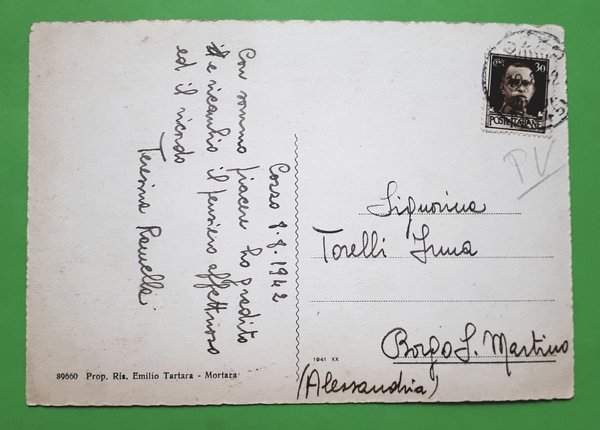 Cozzo 8.8.1942
Con sommo piacere ho gradito
e ricambio il pensiero affettuoso
ed il ricordo
Teresina Ramella
CENT. 30
POSTE ITALIANE
PV
Signorina
Torelli Irma
Borgo S. Martino
(Alessandria)
1941 XX
89660 Prop. Ris. Emilio Tartara - Mortara